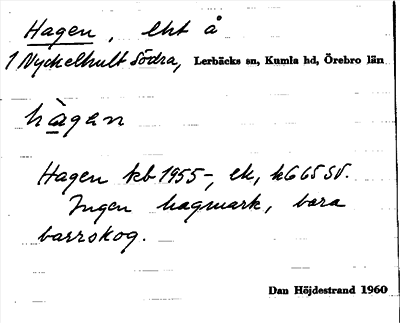 Hagen, lht å
1 Nyckelhult Södra, Lerbäcks sn, Kumla hd, Örebro län
hàgen
Hagen kb 1955-, ek, k6665 SV.
Ingen hagmark, bara
barrskog.
Dan Höjdestrand 1960